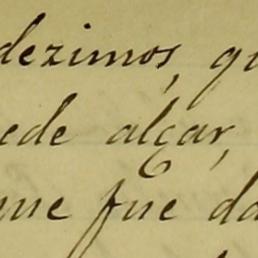 dezimos, qu
ede alçar,
que fue da